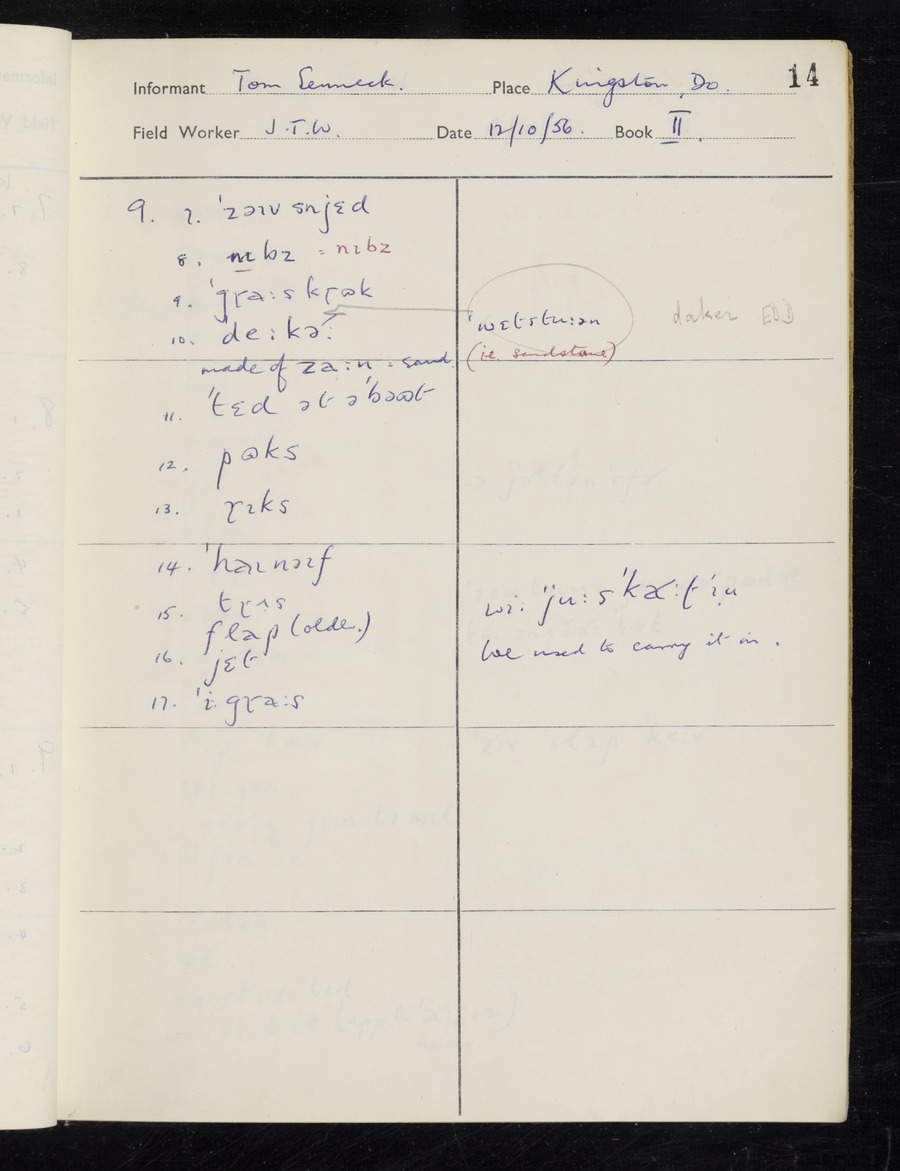 14
Informant Tom Senneck. Place Kingston, Do.
Field Worker J.T.W. Date 12/10/56. Book II.
9. 7. ˈzəɪv snjɛd
8. nɪbz = nɪbz
9. ˈgɽaːs kɽɒk
10. ˈdeːkəɽ ˈwɛtstuːən daker EDD
(ie. sandstone)
made of zaːn = sand
11. ˈtɛd ət əˈbəʊt
12. pɒks
13. ɽɪks
14. ˈhaɪnəɪf
15. tɽʌs wiː ˈjuːs
flap (older)
16. jɛt We used to carry it in.
17. ˈiː gɽaːs